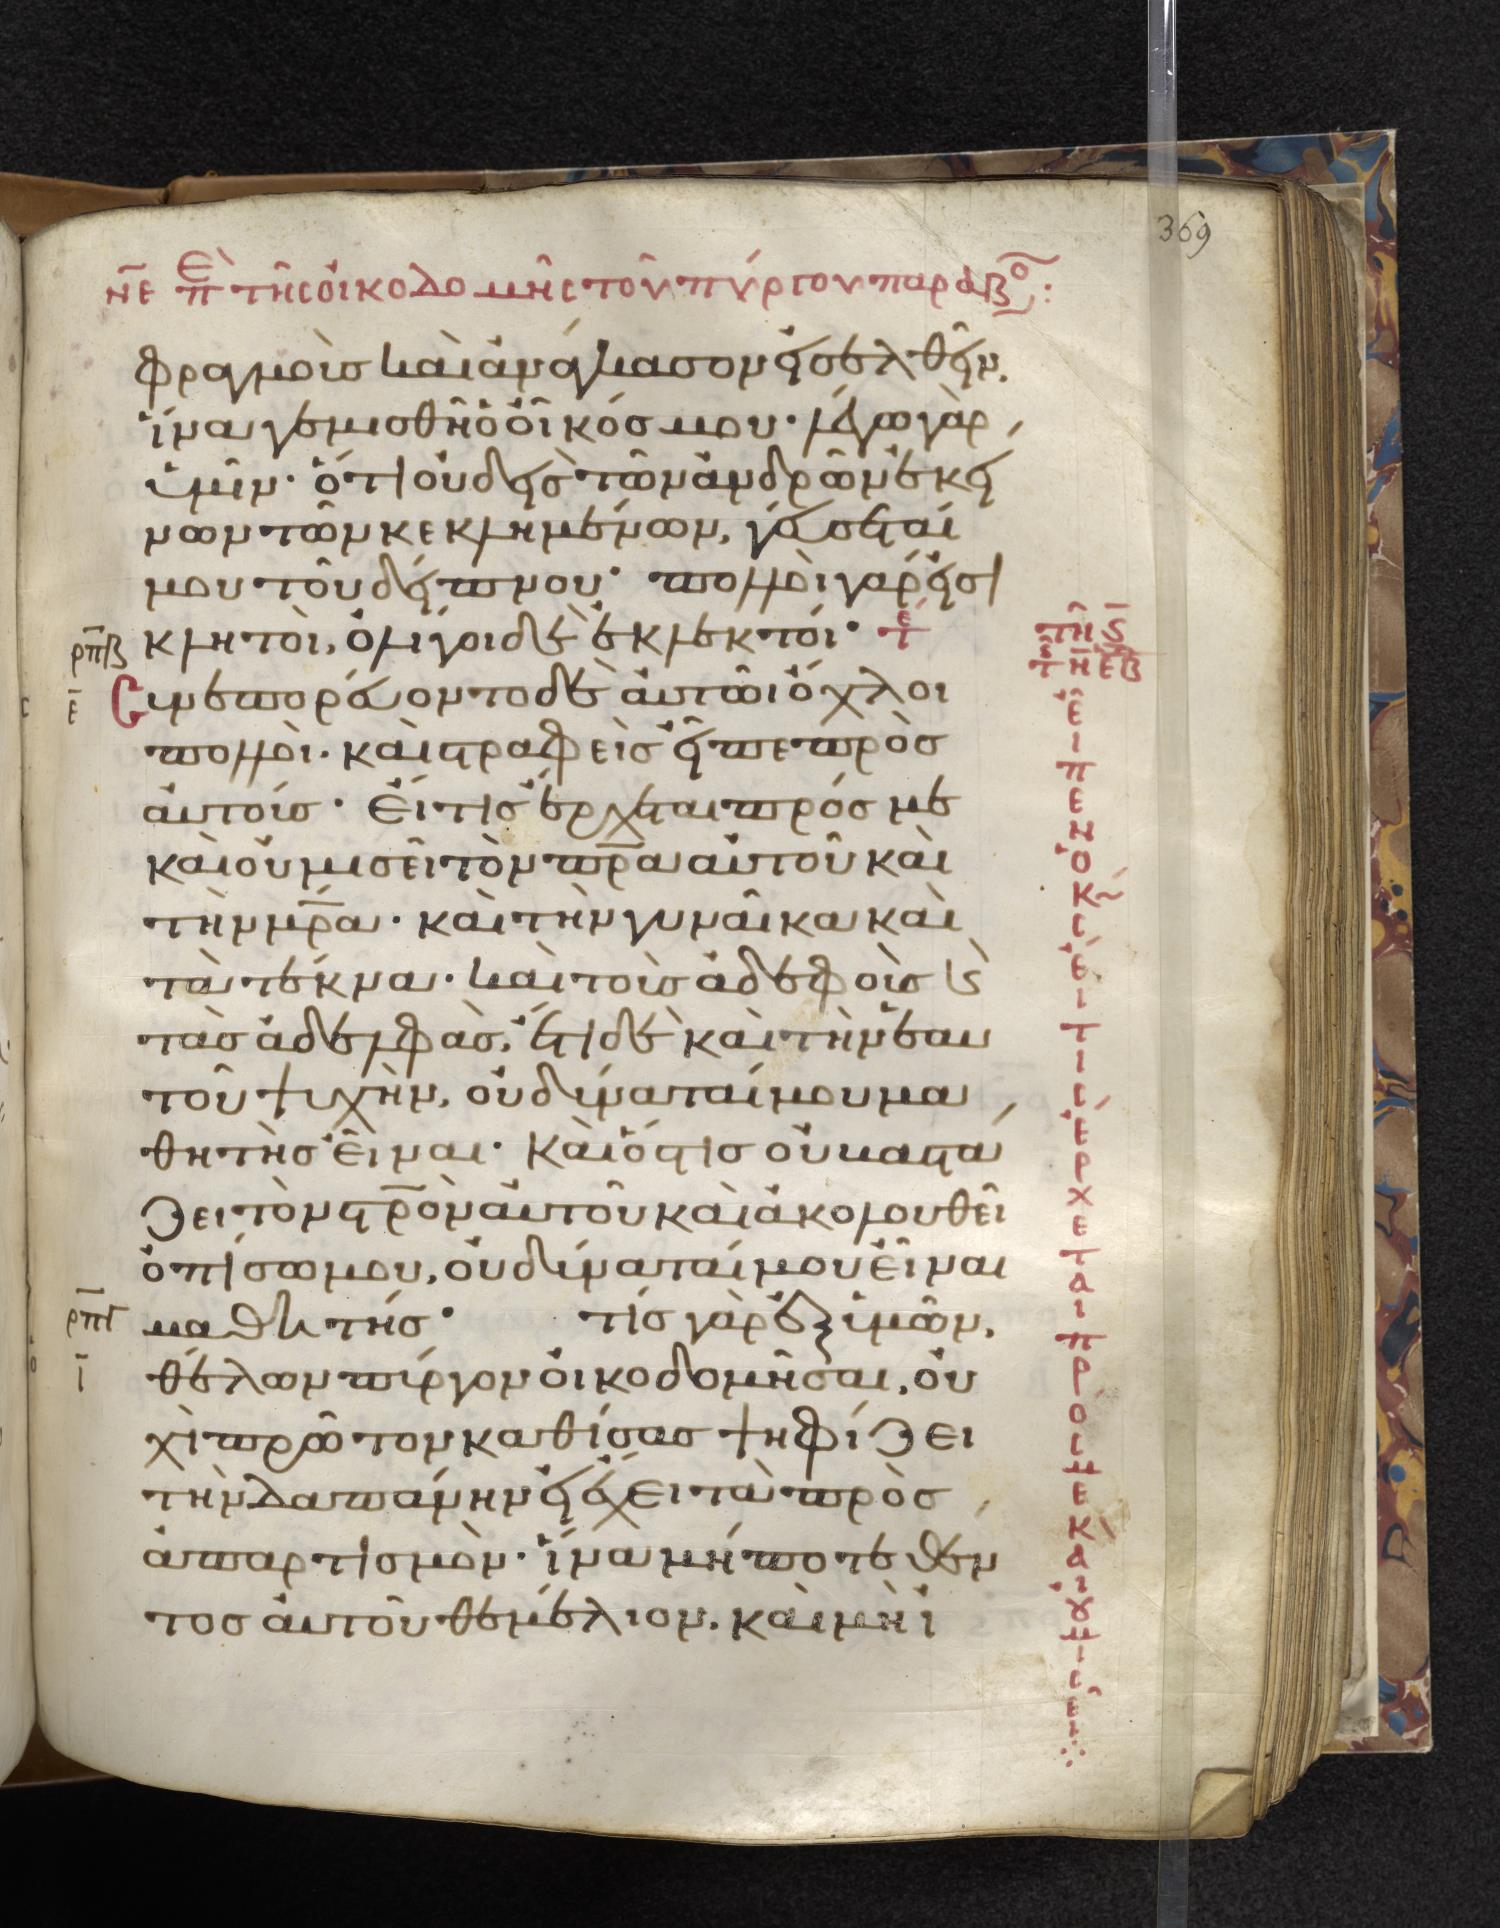 369
ΝΕ ΕΠ ΤΗC ΟΙΚΟΔΟΜΗC ΤΟΥ ΠΥΡΓΟΥ ΠΑΡΑΒΟ:
φραγμοὺς καὶ ἀνάγκασον εἰσελθεῖν,
ἵνα γεμισθῆ ὁ οἶκός μου· λέγω γὰρ
ὑμῖν· ὅτι οὐδεὶς τῶν ἀνδρῶν ἐκεί
νων τῶν κεκλημένων, γεύσεταί
μου τοῦ δείπνου· πολλοὶ γάρ εἰσι
κλητοὶ, ὀλίγοι δὲ ἐκλεκτοί· τε
ρπβ
ε
Συνεπορεύοντο δὲ αὐτῶ ὄχλοι
πολλοὶ· καὶ στραφεὶς εἶπε πρὸς
αὐτούς· Εἴ τις ἔρχεται πρός με
καὶ οὐ μισεῖ τὸν πρα αὐτοῦ καὶ
τὴν μρα· καὶ τὴν γυναῖκα καὶ
τὰ τέκνα· καὶ τοὺς ἀδελφοὺς ϗ
τὰς ἀδελφὰς, ἔτι δὲ καὶ τὴν ἑαυ
τοῦ ψυχὴν, οὐ δύναταί μου μα
θητὴς εἶναι· καὶ ὅστις οὐ βαστά
ζει τὸν στρον αὐτοῦ καὶ ἀκολουθεῖ
ὀπίσω μου, οὐ δύναταί μου εἶναι
μαθητής· τίς γὰρ ἐξ ὑμῶν,
ρπγ
ι
θέλων πύργον οἰκοδομῆσαι, οὐ
χὶ πρῶτον καθίσας ψηφίζει
τὴν δαπάνην εἰ ἔχει τὰ πρὸς
ἀπαρτισμόν· ἵνα μήποτε θέν
τος αὐτοῦ θεμέλιον, καὶ μὴ ἰ
ΤΗ Ϛ
ΤΗC ΕΒ
εἶπεν ὁ κς εἴ τις ἔρχεται πρός με καὶ οὐ μισεῖ